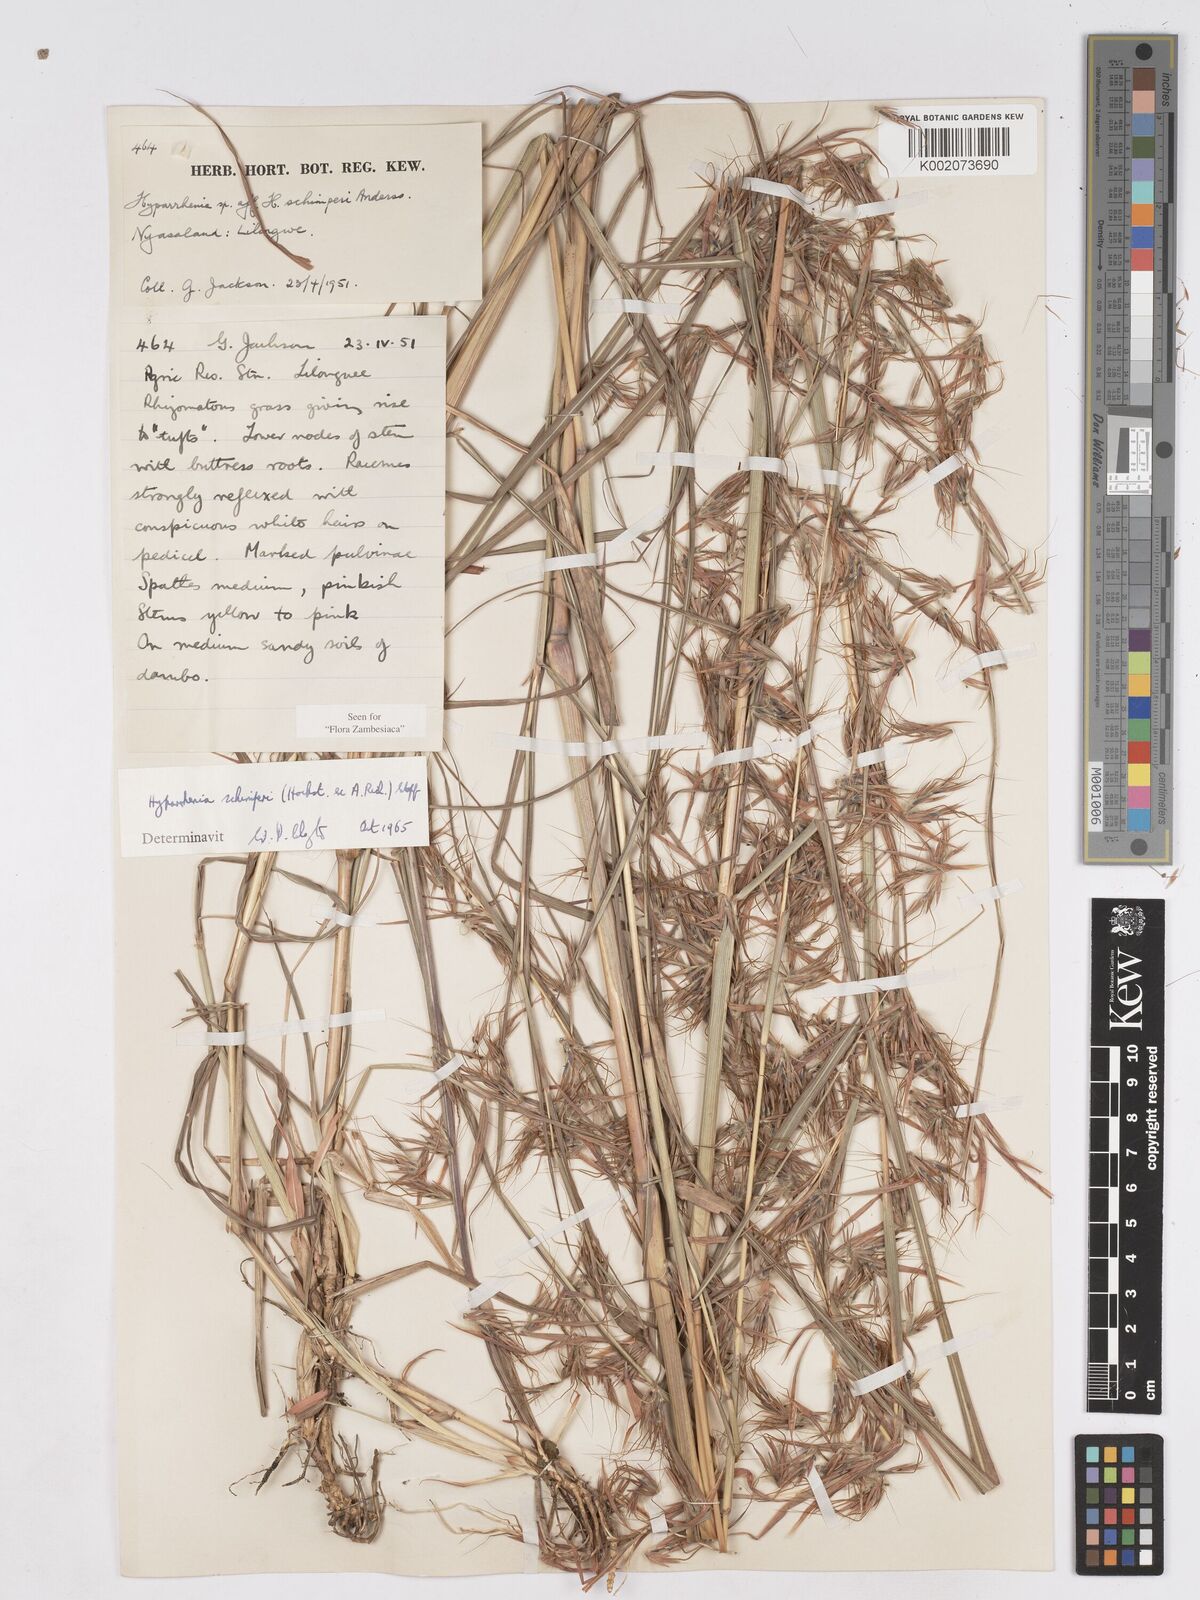 464
HERB. HORT. BOT. REG. KEW.
Hyparrhenia sp. aff H. schimperi Anderss.
Nyasaland: Lilongwe.
Coll. G. Jackson. 23/4/1951.
464 G. Jackson 23·IV·51
Agric Res. Stn. Lilongwe
Rhizomatous grass giving rise
to "tufts". Lower nodes of stem
with buttress roots. Racemes
strongly reflexed with
conspicuous white hairs on
pedicel. Marked pulvinae
Spathes medium, pinkish
Stems yellow to pink
On medium sandy soils of
dambo.
Seen for
"Flora Zambesiaca"
Hyparrhenia schimperi (Hochst. ex A. Rich.) Stapf
Determinavit W. D. Clayton Oct 1965
ROYAL BOTANIC GARDENS KEW
K002073690
inches
centimetres
Density
Don Williams
M001006
Royal Botanic Gardens
Kew
0 1 2 3 4 5 6 7 8 9 10
cm
copyright reserved